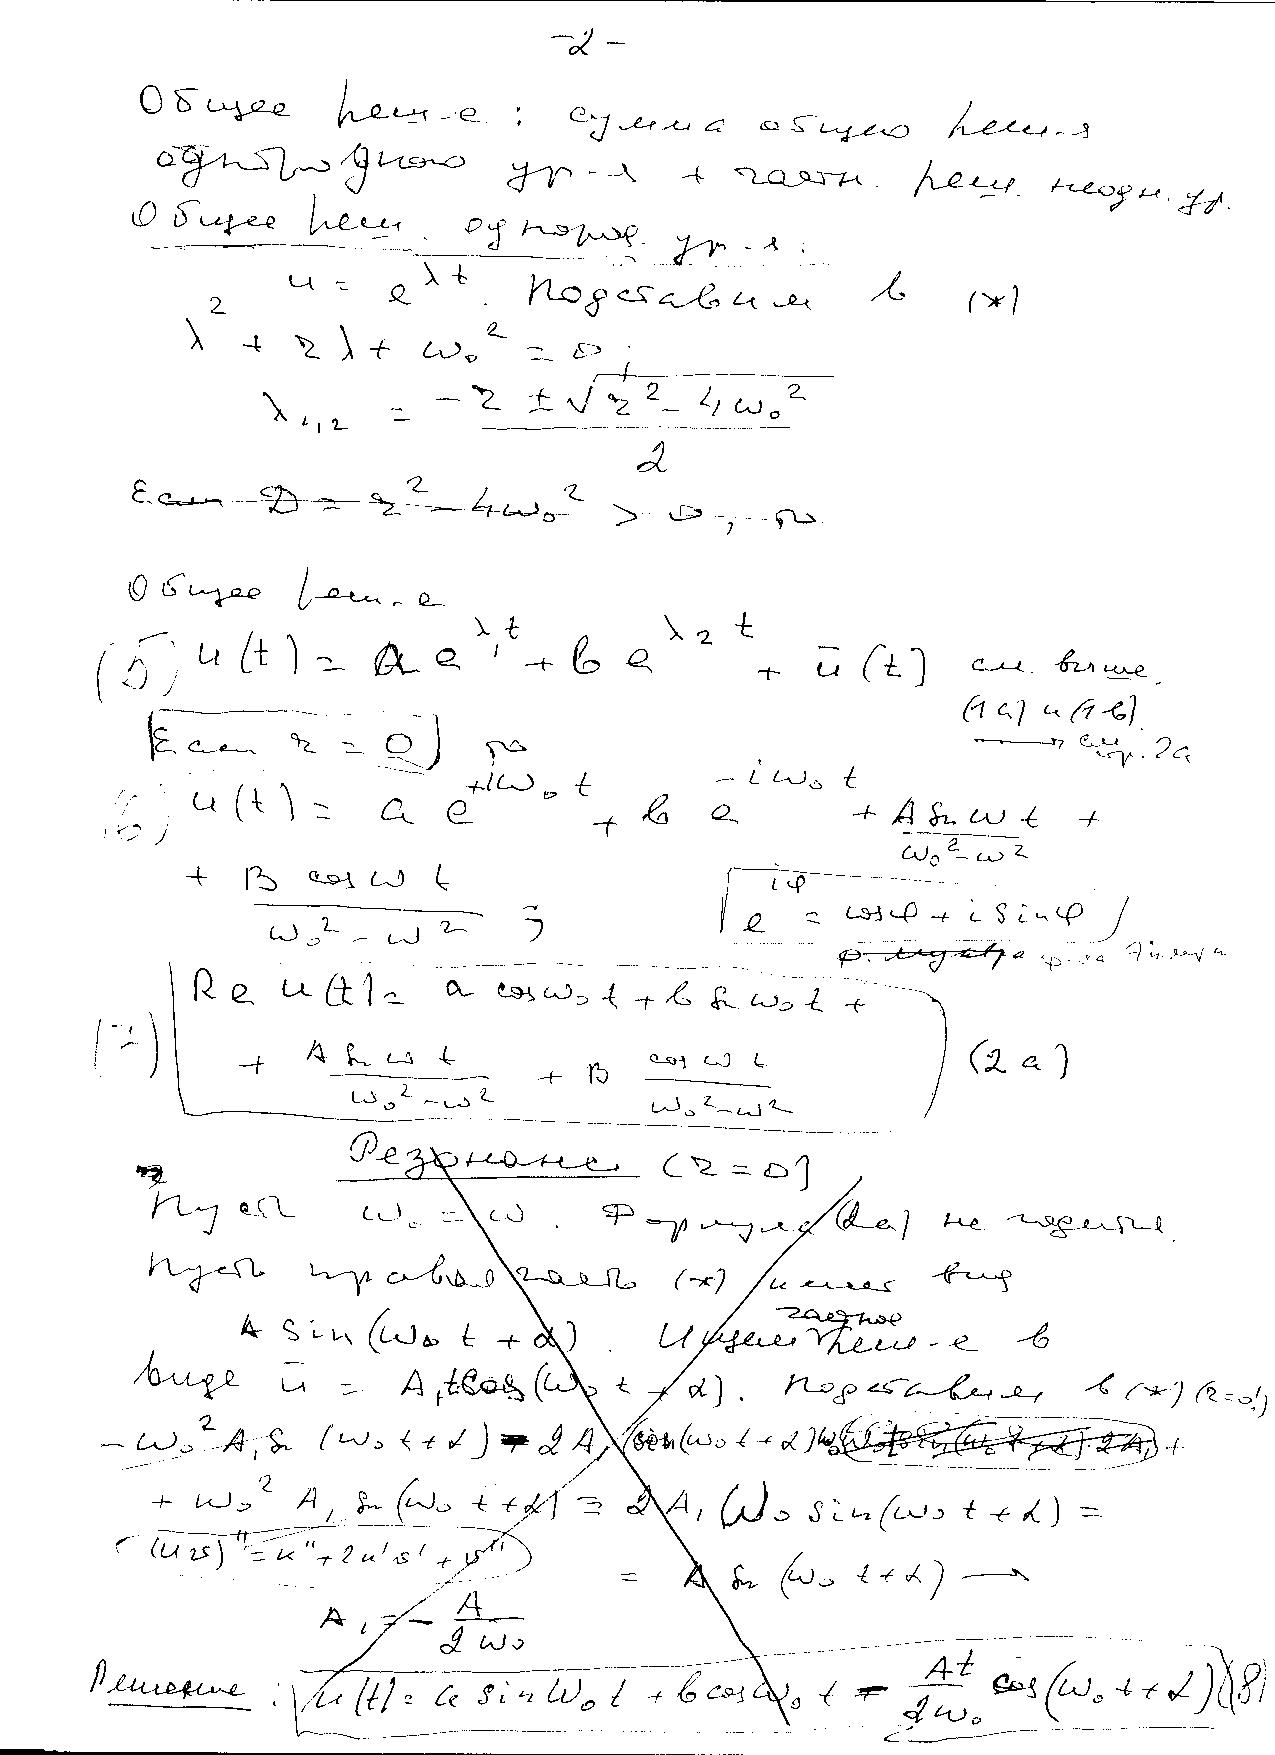 -2-
Общее реш-е: сумма общего реш-я
однородного ур-я + частн. реш. неодн. ур.
Общее реш. однород. ur-я:
u = e^{λt}. Подставим в (*)
λ² + rλ + ω₀² = 0;
λ₁,₂ = (-r ± √(r² - 4ω₀²)) / 2
Если D = r² - 4ω₀² > 0, то
Общее реш-е
(5) u(t) = a e^{λ₁t} + b e^{λ₂t} + ū(t) см. выше
(1a) и (1б).
→ см. стр. 2а
Если r = 0, то
(6) u(t) = a e^{+iω₀t} + b e^{-iω₀t} + A sin ωt / (ω₀² - ω²) +
+ B cos ωt / (ω₀² - ω²) ;
e^{iφ} = cos φ + i sin φ
ф-ла Эйлера
(7) Re u(t) = a cos ω₀t + b sin ω₀t +
+ A sin ωt / (ω₀² - ω²) + B cos ωt / (ω₀² - ω²) (2a)
Резонанс (r = 0)
Пусть ω₀ = ω. Формула (2a) не годится.
Пусть правая часть (*) имеет вид
A sin(ω₀t + α). Ищем частное реш-е в
виде ū = A₁t cos(ω₀t + α). Подставляем в (*) (r=0!)
-ω₀² A₁ sin(ω₀t + α) - 2A₁ sin(ω₀t + α)ω₀ +
+ ω₀² A₁ sin(ω₀t + α) = 2A₁ ω₀ sin(ω₀t + α) =
(uv)'' = u'' + 2u'v' + v''
= A sin(ω₀t + α) →
A₁ = - A / 2ω₀
Решение: u(t) = a sin ω₀t + b cos ω₀t - At / 2ω₀ cos(ω₀t + α) (8)